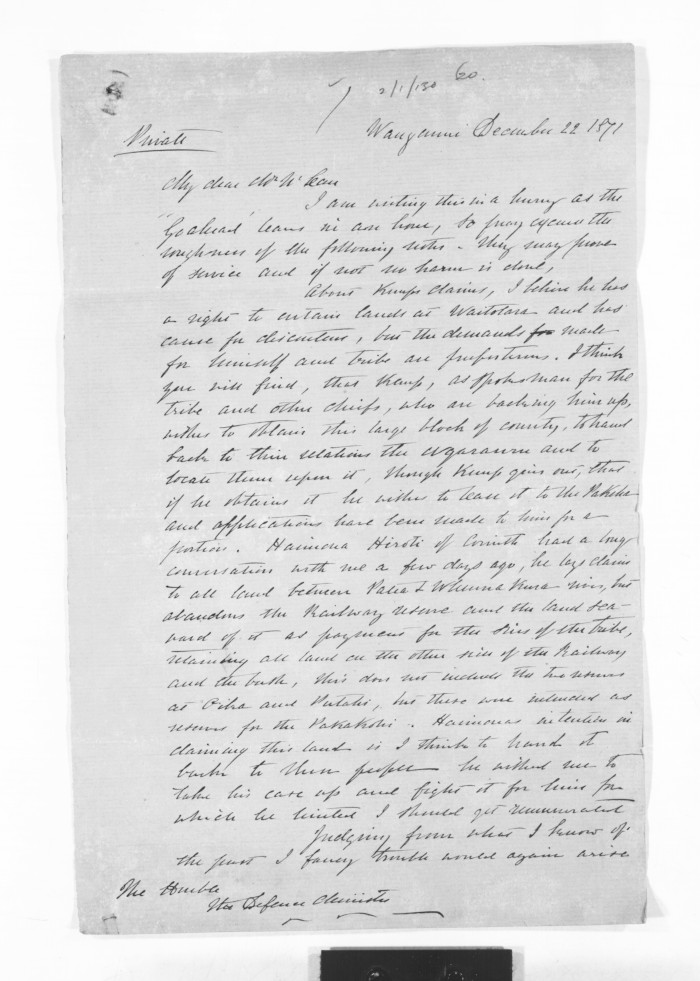 2/1/130 60.
Wanganui December 22 1871
Private
My dear Mr McLean
I am writing this in a hurry as the
"Goahead" leaves in an hour, so pray excuse the
roughness of the following notes - they may prove
of service and if not no harm is done,
About Kemps claims, I believe he has
a right to certain lands at Waitotara and has
cause for discontent, but the demands for made
for himself and tribe are preposterous. I think
you will find, that Kemp, as spokesman for the
tribe and other chiefs, who are backing him up,
wishes to obtain this large block of country, to hand
back to their relations the Ngarauru and to
locate them upon it, though Kemp gives out, that
if he obtains it he wishes to lease it to the Pakeha
and applications have been made to him for a
portion. Haimona Hiroti of Corinth had a long
conversation with me a few days ago, he lays claim
to all land between Patea & Whenua Kura river, but
abandons the Railway reserve and the land sea-
ward of it as payment for the sins of the tribe,
retaining all land on the other side of the Railway
and the bush, this does not include the two reserves
as Oika and Putahi, but these were intended as
reserves for the Pakakohi. Haimonas intention in
claiming this land is I think to hand it
back to them people he wished me to
take his case up and fight it for him for
which he hinted I should get remunerated
Judging from what I know of
the past I fancy trouble would again arise
The Honble
The Defence Minister